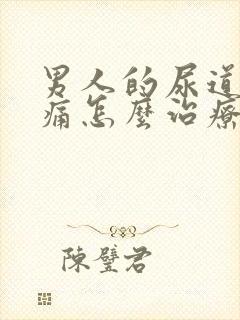 男人的尿道
痛怎麼治療
陳璧君